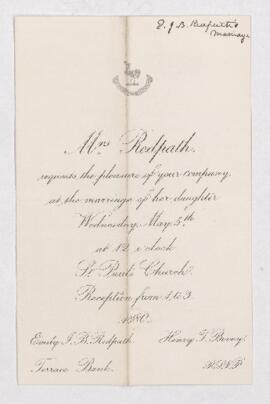 E. J. B. Redpath's
Marriage
Mrs Redpath.
requests the pleasure of your company,
at the marriage of her daughter
Wednesday, May 5th
at 12 o'clock
St Paul's Church.
Reception from 1 to 3.
1880.
Emily J. B. Redpath. Henry T. Bovey.
Terrace Bank. R.S.V.P.